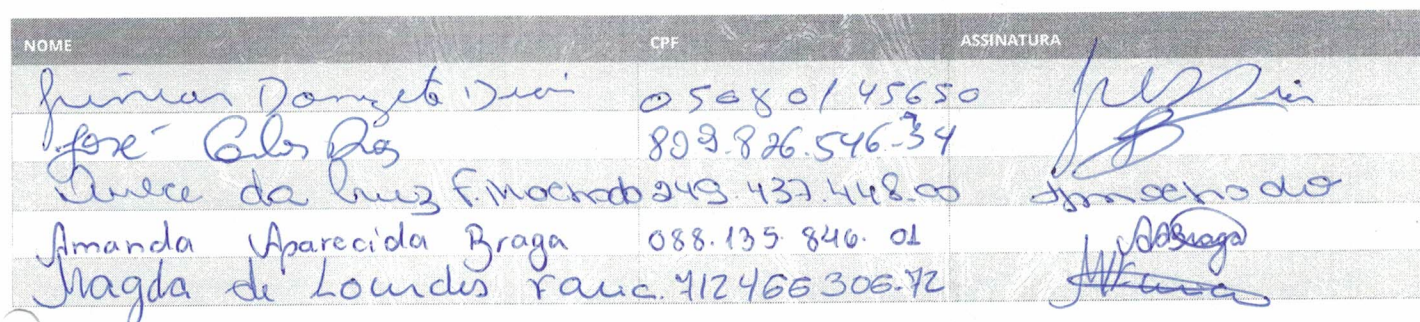 NOME CPF ASSINATURA
Donizete Dias 05080145650
José Carlos 809.826.546-34
da Cruz F. Machado 249.437.448.00 Machado
Amanda Aparecida Braga 088.135.846.01 AABraga
Magda de Lourdes 712466306.72